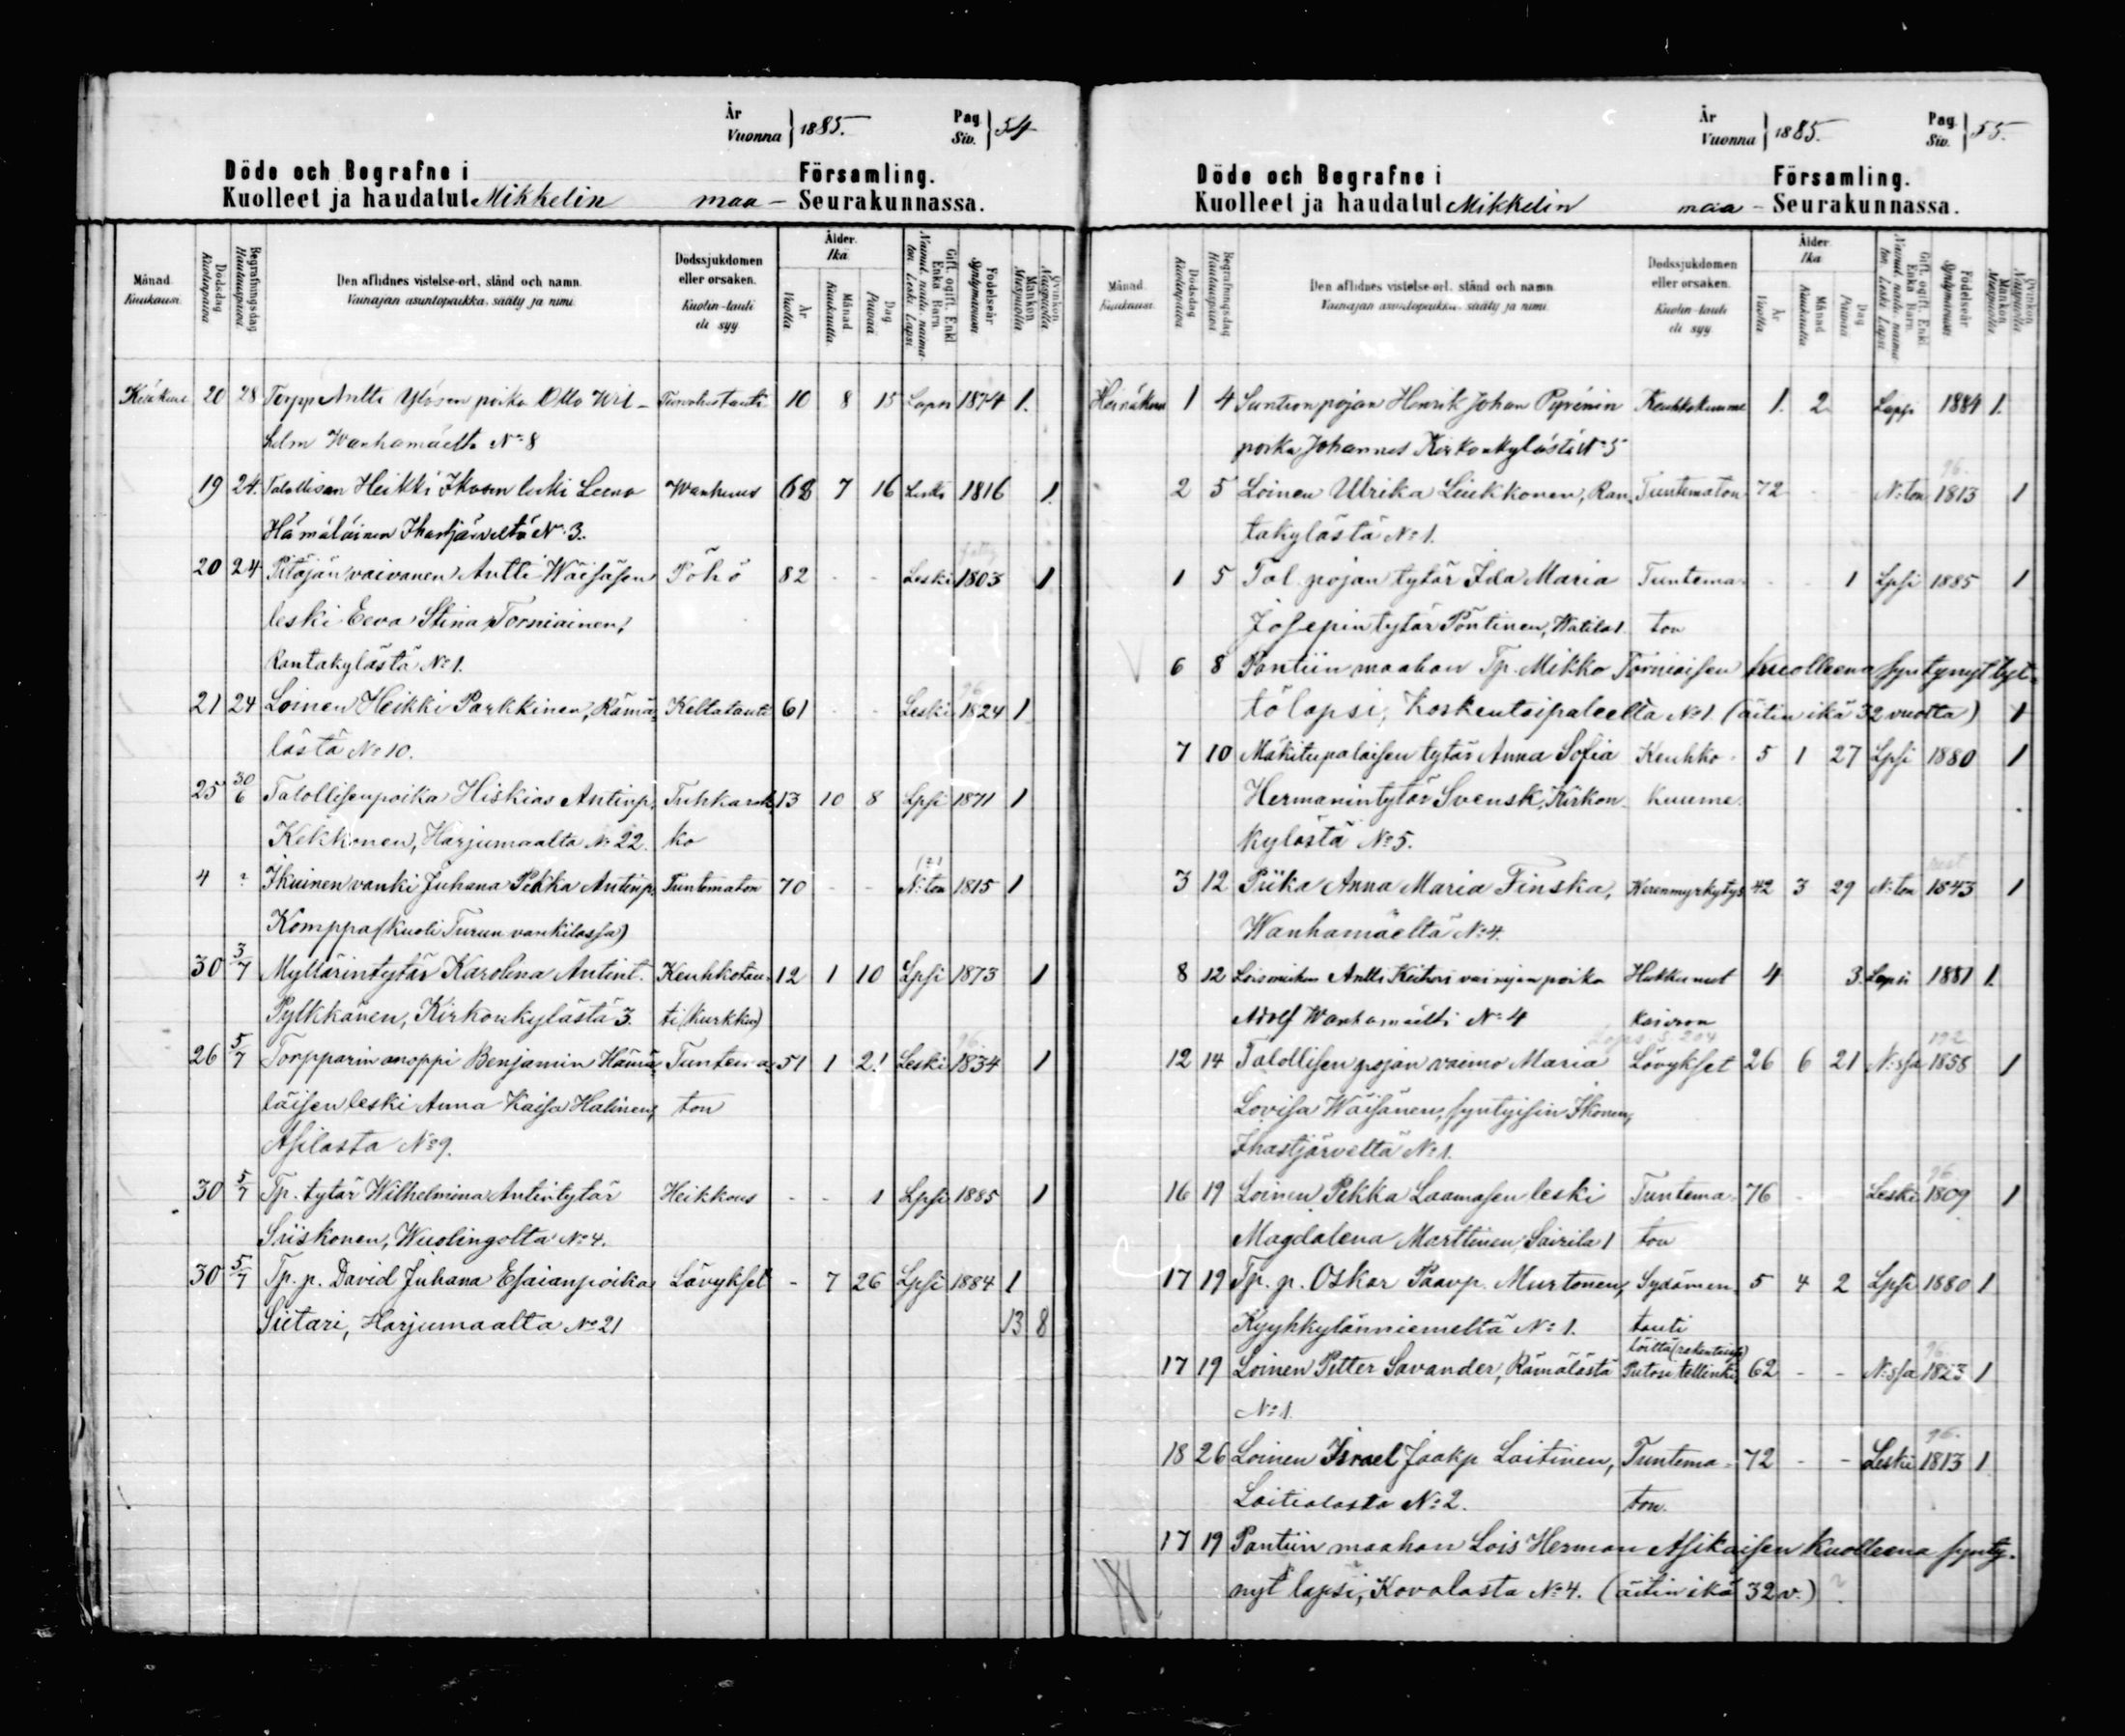 År
Vuonna } 1885.
Pag.
Siv. } 54
Döde och Begrafne i Församling.
Kuolleet ja haudatut Mikkelin maa - Seurakunnassa.
Månad. Kuukausi.
Dödsdag Kuolinpäivä
Begrafningsdag Hautauspäivä
Den aflidnes vistelse-ort, stånd och namn.
Vainajan asuntopaikka, sääty ja nimi.
Dödssjukdomen eller orsaken.
Kuolin-tauti eli syy
Ålder. Ikä
År Vuotta
Månad Kuukautta
Dag Päivää
Gift, ogift, Enkl. Enka, Barn.
Födelseår Syntymävuosi
Mankön Miespuolia
Qvinkön Naispuolia
Kesäkuu 20 28 Torpp. Antti Ylösen poika Otto Wil- 10 8 15 Lapsi 1874 1.
helm Wanhamäeltä No 8
19 24. Talollisen Heikki Ikosen leski Leena Wanhuus 68 7 16 Leski 1816 1.
Hämäläinen Ihastjärveltä No 3.
20 24 Pitäjän vaivanen Antti Wäisäsen Pöhö 82 - - Leski 1803 1
leski Eeva Stina Torniainen,
Rantakylästä No 1.
21 24 Loinen Heikki Parkkinen, Rämä- Keltatauti 61 - - Leski 1824 1
lästä No 10.
25 30/6 Talollisenpoika Hiskias Antinp. Tuhkarok- 13 10 8 Lpsi 1871 1
Kekkonen, Harjumaalta No 22. ko
4 ? Ikuinen vanki Juhana Pekka Antinp. Tuntematon 70 - - N:ton 1815 1
Komppa (kuoli Turun vankilassa)
30 3/7 Myllärintytär Karolina Antint. Keuhkotau- 12 1 10 Lpsi 1873 1
Pylkkänen, Kirkonkylästä 3. ti (kurkku)
26 5/7 Torpparin anoppi Benjamin Hämä- Tuntema- 51 1 21 Leski 1834 1
läisen leski Anna Kaisa Halinen, ton
Asilasta No 9.
30 5/7 Tp. tytär Wilhelmina Antintytär Heikkous - - 1 Lpsi 1885 1
Siiskonen, Wuolingolta No 4.
30 5/7 Tp. p. David Juhana Esaianpoika Lävykset - 7 26 Lpsi 1884 1
Siitari, Harjumaalta No 21 13 8
År
Vuonna } 1885.
Pag.
Siv. } 55.
Döde och Begrafne i Församling.
Kuolleet ja haudatut Mikkelin maa - Seurakunnassa.
Månad. Kuukausi.
Dödsdag Kuolinpäivä
Begrafningsdag Hautauspäivä
Den aflidnes vistelse-ort, stånd och namn.
Vainajan asuntopaikka, sääty ja nimi.
Dödssjukdomen eller orsaken.
Kuolin-tauti eli syy
Ålder. Ikä
År Vuotta
Månad Kuukautta
Dag Päivää
Gift, ogift, Enkl. Enka, Barn.
Födelseår Syntymävuosi
Mankön Miespuolia
Qvinkön Naispuolia
Heinäkuu 1 4 Suntionpojan Henrik Johan Pyrönin Keuhkokuume 1. 2 Lapsi 1884 1.
poika Johannes Kirkonkylästä No 5
2 5 Loinen Ulrika Liukkonen, Ran- Tuntematon 72 N:ton 1813 1
takylästä No 1.
1 5 Tal. pojan tytär Ida Maria Tuntema- - - 1 Lpsi 1885 1
Josepintytär Pöntinen, Watila 1. ton
6 8 Pantiin maahan Tp. Mikko Torniaisen kuolleena syntynyt tyt-
tölapsi, Koskentaipaleelta No 1. (äitin ikä 32 vuotta) 1
7 10 Mäkitupalaisen tytär Anna Sofia Keuhko- 5 1 27 Lpsi 1880 1
Hermanintytär Svensk, Kirkon- kuume.
kylästä No 5.
3 12 Piika Anna Maria Finska, Verenmyrkytys 42 3 29 N:ton 1843 1
Wanhamäeltä No 4.
8 12 Loismiehen Antti poika Hukkunut 4 3. Lapsi 1881 1.
Adolf Wanhamäeltä No 4 kaivoon
12 14 Talollisen pojan vaimo Maria Lävykset 26 6 21 N:ssa 1858 1
Lovisa Wäisänen, syntyisin Ikonen,
Ihastjärveltä No 1.
16 19 Loinen Pekka Laamasen leski Tuntema- 76 Leski 1809 1
Magdalena Marttinen, Sairila 1 ton
17 19 Tp. p. Oskar Paavp. Murtonen, Sydämen- 5 4 2 Lpsi 1880 1
Kyyhkylänniemeltä No 1. tauti
17 19 Loinen Petter Savander, Rämälästä Putosi tellinki- 62 - - N:ssa 1823 1
No 1.
18 26 Loinen Israel Jaakp. Laitinen, Tuntema- 72 - - Leski 1813 1
Laitialasta No 2. ton.
17 19 Pantiin maahan Lois Herman Asikaisen kuolleena synty-
nyt lapsi, Kovalasta No 4. (äitin ikä 32 v.) ?